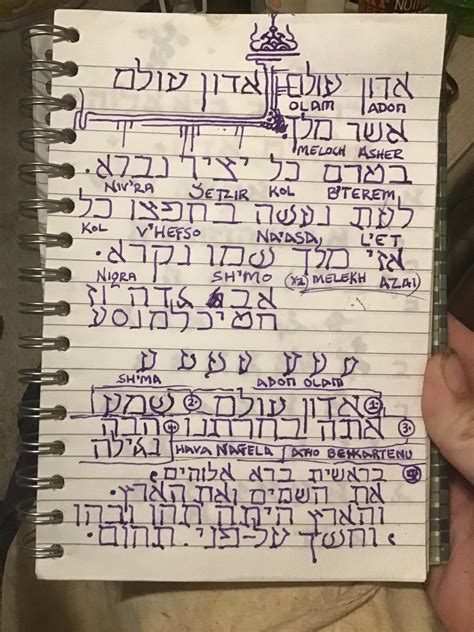 אדון עולם אדון עולם
OLAM ADON
אשר מלך
MELOCH ASHER
בטרם כל יציר נברא.
NIV'RA YETZIR KOL B'TEREM
לעת נעשה בחפצו כל
KOL V'HEFSO NA'ASA, L'ET
אזי מלך שמו נקרא.
NIGRA SH'MO (x2) MELEKH AZAI
חטיכלמנסע
ע ע ע ע ע
SH'MA ADON OLAM
1. אדון עולם 2. שמע
3. אתה בחרתנו 4. הבה
HAVA NAGELA / ATHO BEHKARTENU נגילה
5. בראשית ברא אלוהים
את השמים ואת הארץ.
והארץ היתה תהו ובהו
וחשך על-פני תהום.